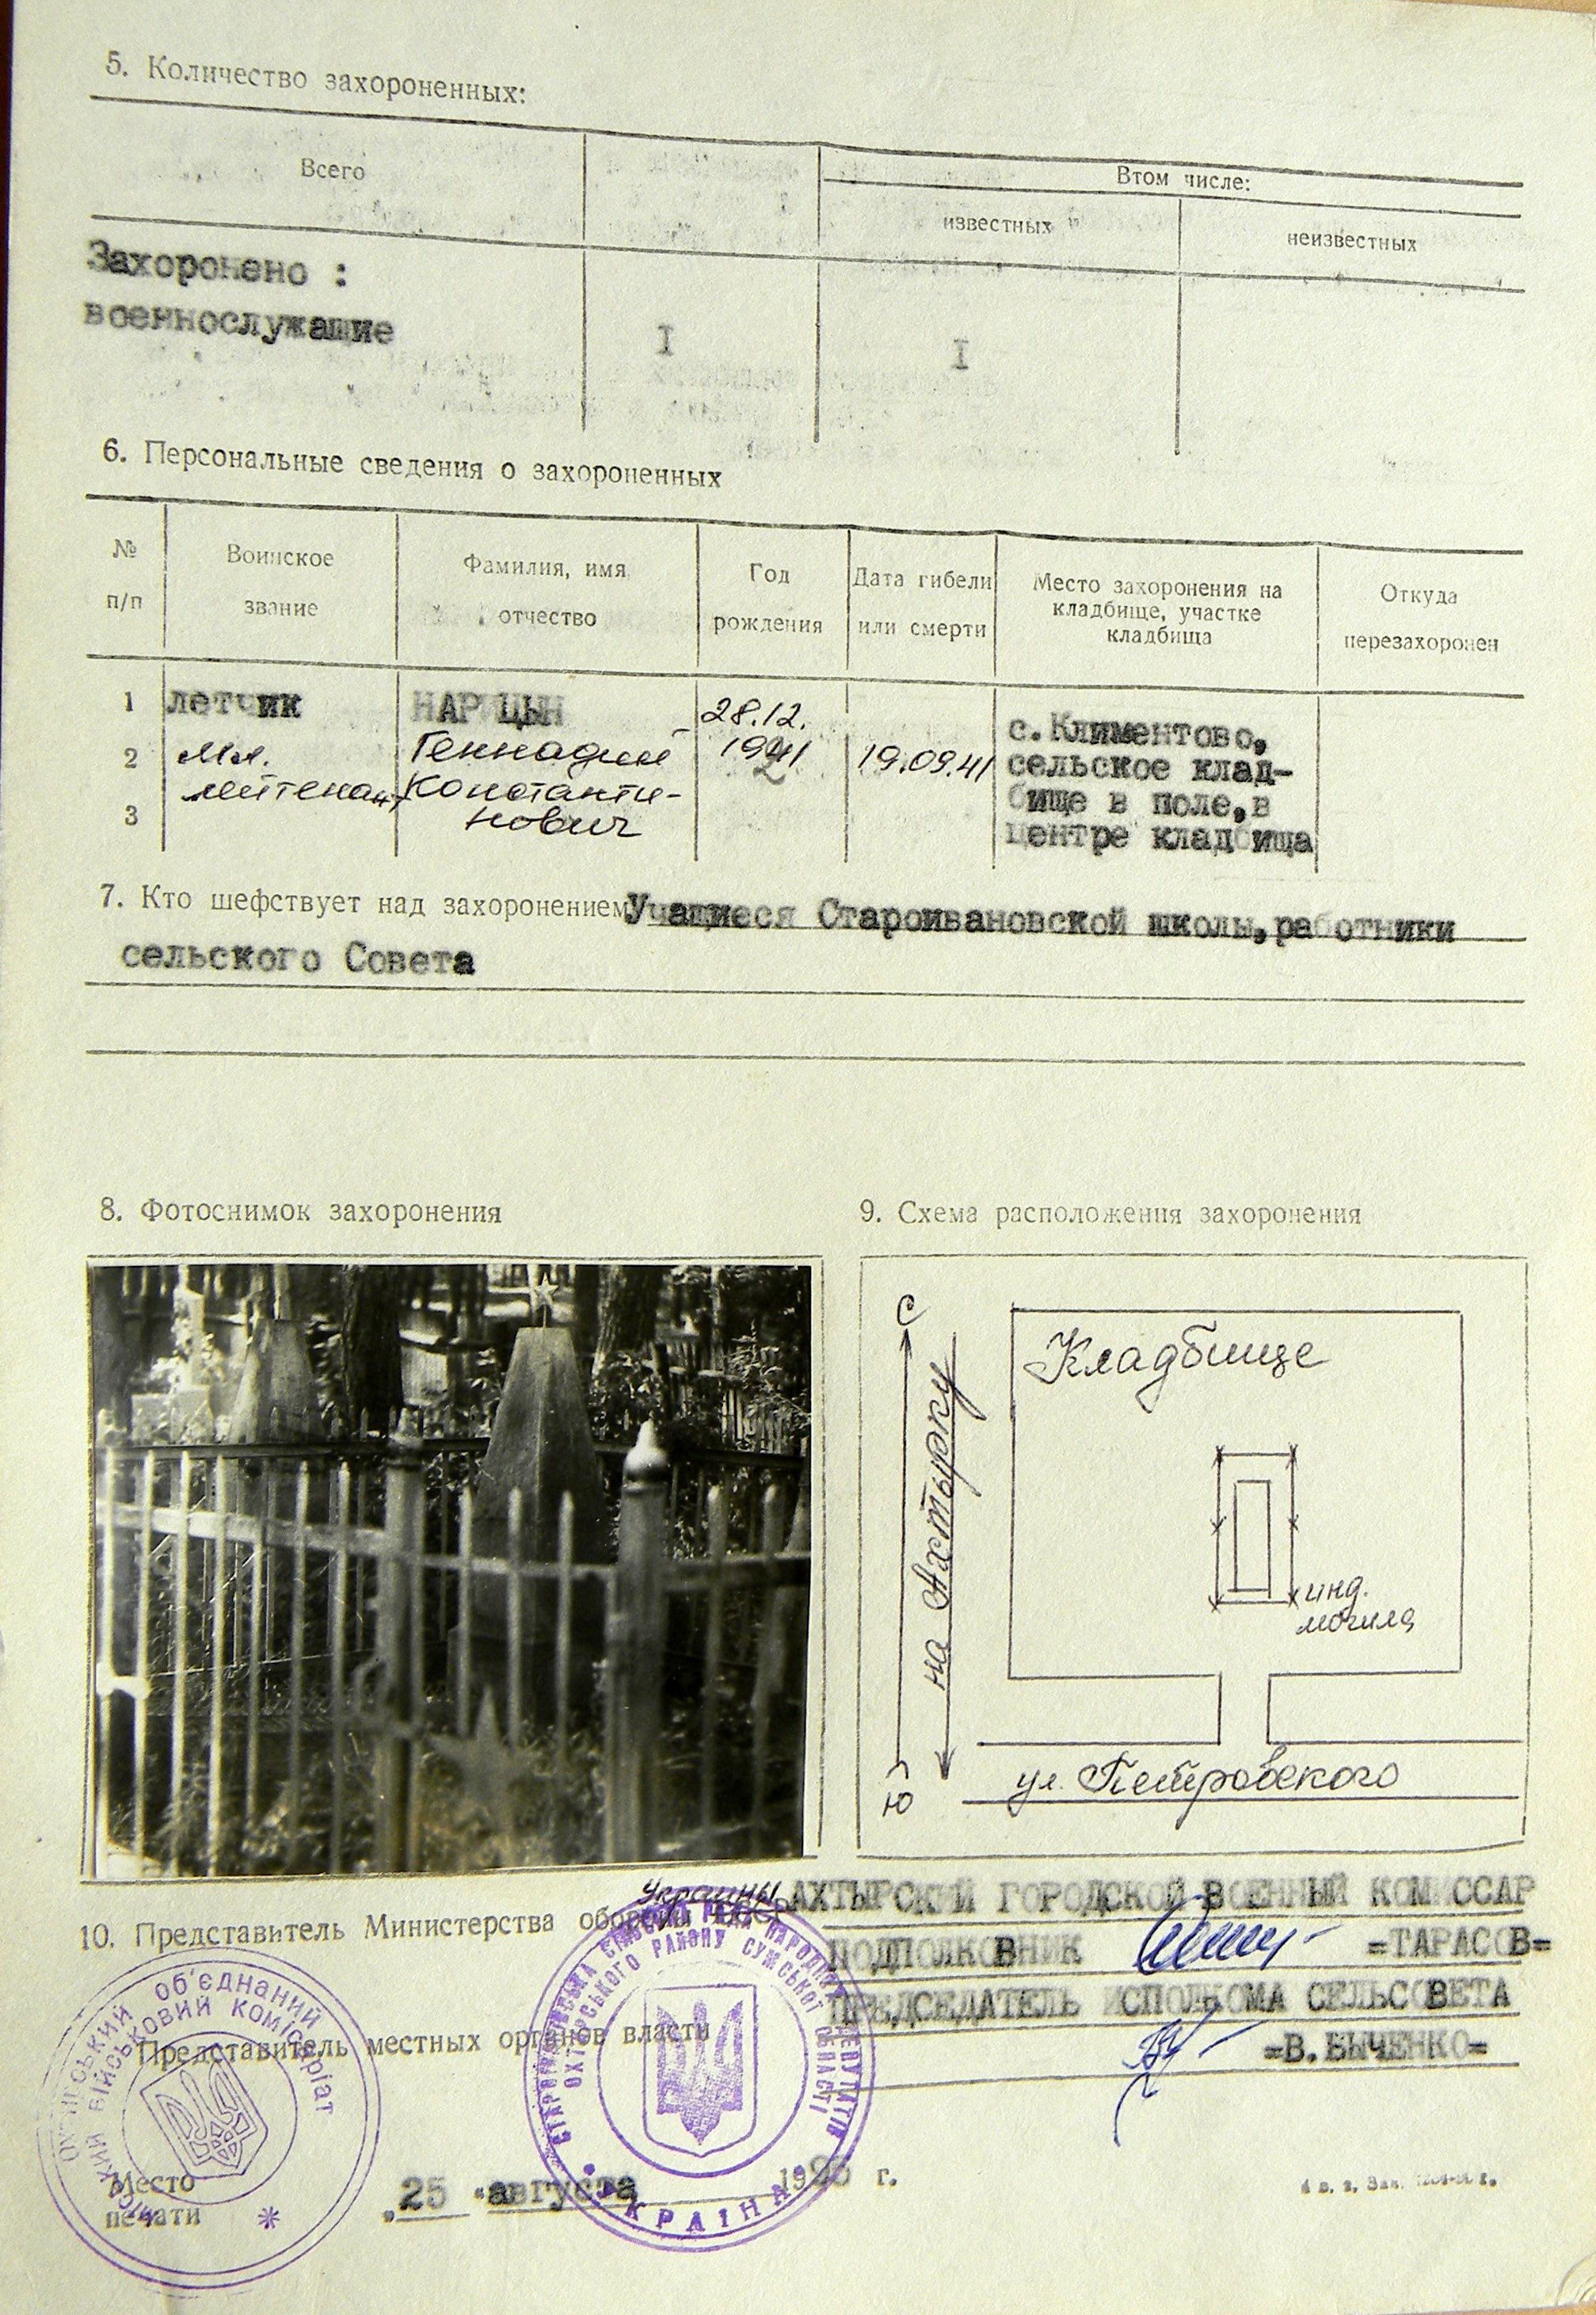 5. Количество захороненных:
Всего
Втом числе:
известных
неизвестных
Захоронено :
военнослужащие
I
I
6. Персональные сведения о захороненных
№ п/п
Воинское звание
Фамилия, имя отчество
Год рождения
Дата гибели или смерти
Место захоронения на кладбище, участке кладбища
Откуда перезахоронен
1
2
3
летчик
Мл.
лейтенант
НАРИЦЫН
Геннадий
Константи-
нович
28.12.
19.09.41
с.Климентово,
сельское клад-
бище в поле,в
центре кладбища
7. Кто шефствует над захоронением Учащиеся Староивановской школы,работники
сельского Совета
8. Фотоснимок захоронения
9. Схема расположения захоронения
С
на Ахтырку
Ю
Кладбище
инд.
могила
ул. Петровского
Украины
АХТЫРСКИЙ ГОРОДСКОЙ ВОЕННЫЙ КОМИССАР
10. Представитель Министерства обороны СССР
ПОДПОЛКОВНИК =ТАРАСОВ=
ПРЕДСЕДАТЕЛЬ ИСПОЛКОМА СЕЛЬСОВЕТА
Представитель местных органов власти
=В.БЫЧЕНКО=
об'єднаний
військовий комісаріат
ОХТИРСЬКОГО РАЙОНУ СУМСЬКОЇ ОБЛАСТІ
НАРОДНИХ ДЕПУТАТІВ
УКРАЇНА
Место
печати
„25 “ августа г.